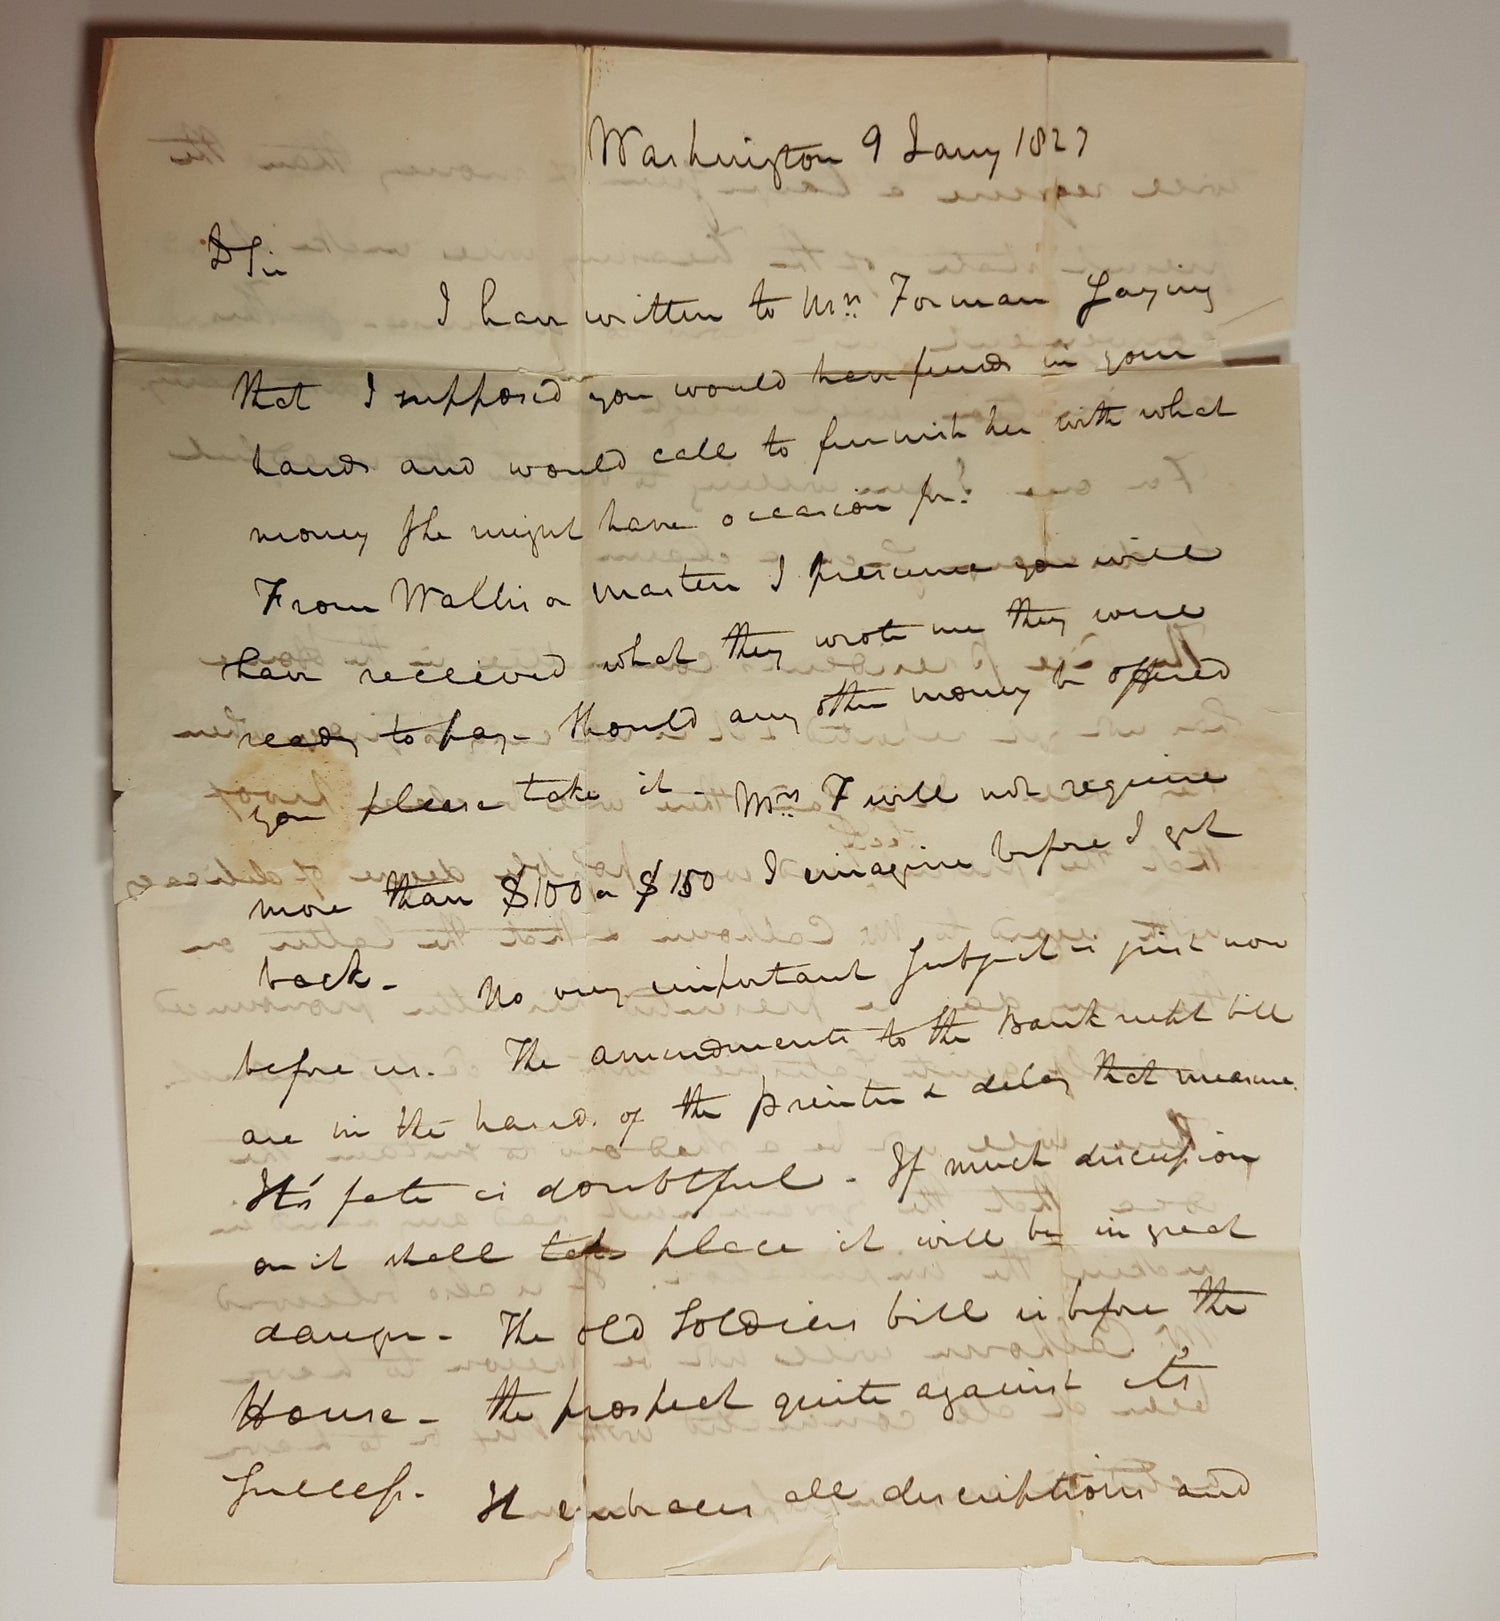 Washington 9 Jany 1827
D Sir
I have written to Mrs. Forman Saying
that I supposed you would have funds in your
hands and would call to furnish her with what
money She might have occasion for.
From Wallis or Masten I presume you will
have received what they wrote me they were
ready to pay - Should any other money be offered
you please take it - Mrs F will not require
more than $100 or $150 I imagine before I get
back - No very important Subject is just now
before us. The amendments to the Bankrupt bill
are in the hands of the printer & delay that measure.
It's fate is doubtful - If much discussion
on it shall take place it will be in great
danger - The old Soldiers bill is before the
House - the prospect quite against it's
Success - It embraces all descriptions and